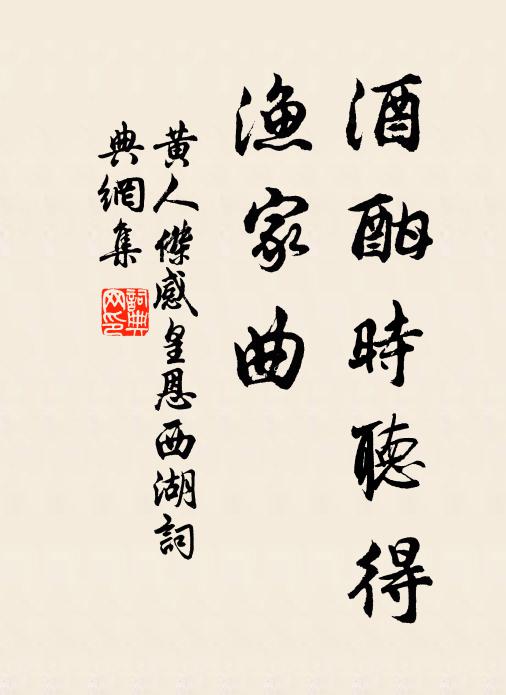 酒酣時聽得
漁家曲
黄人傑感皇恩西湖詞
典網集
詞典網印